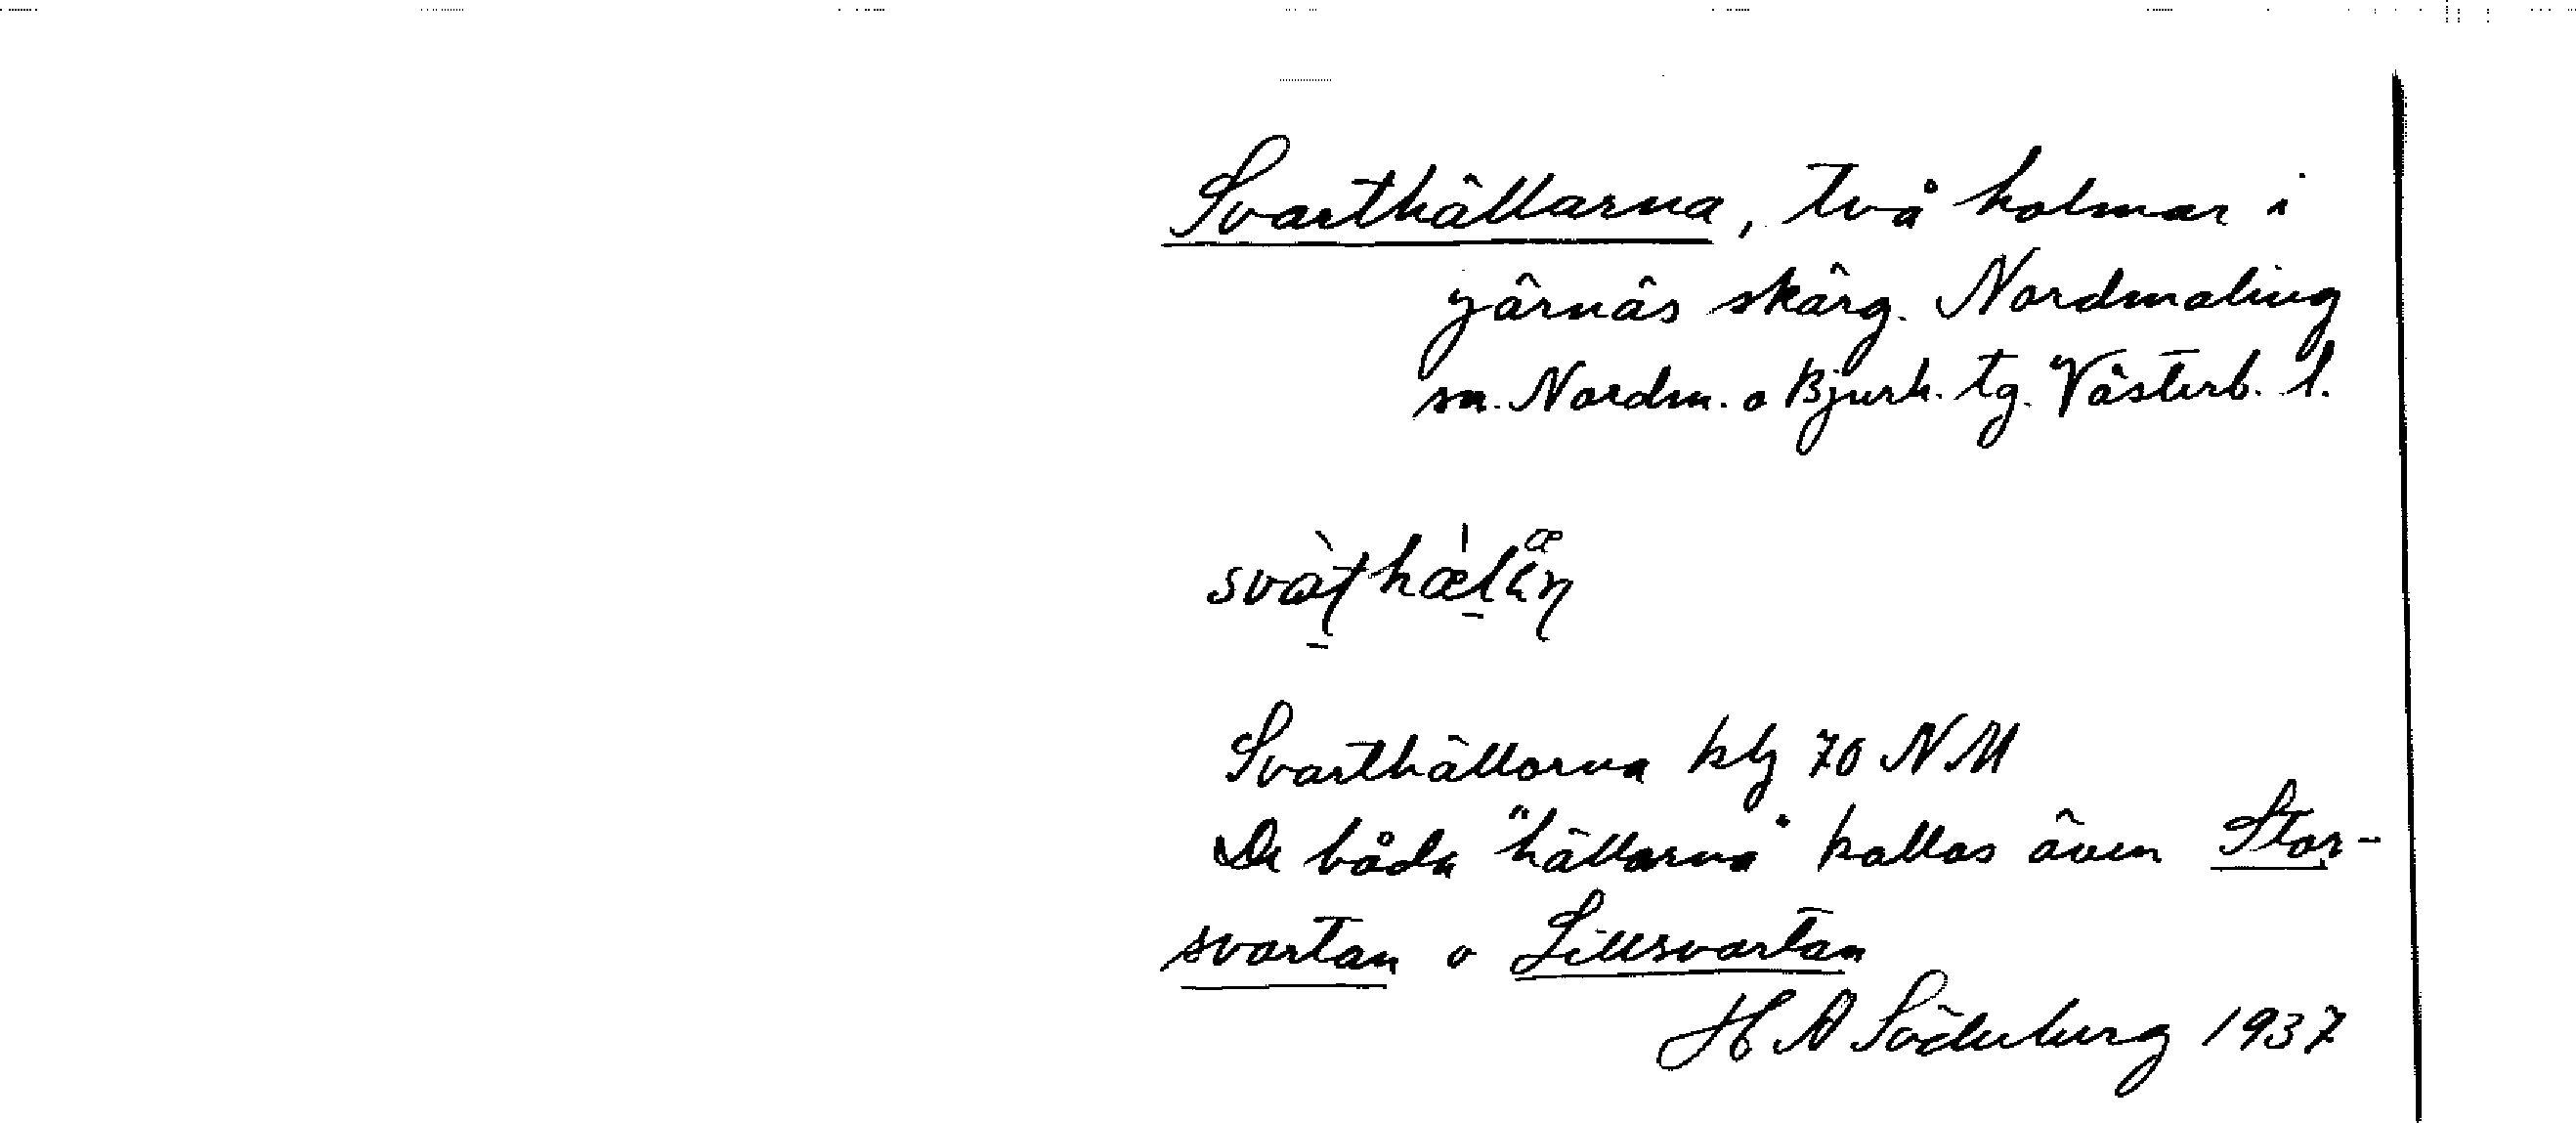 Svarthällarna, två holmar i
Järnäs skärg. Nordmaling
sn. Nordm. o Bjurh. tg. Västerb. l.
Svarthällorna kbl 70 NM
De båda "hällarna" kallas även Stor-
svartan o Lillsvartan
H A Söderberg 1937